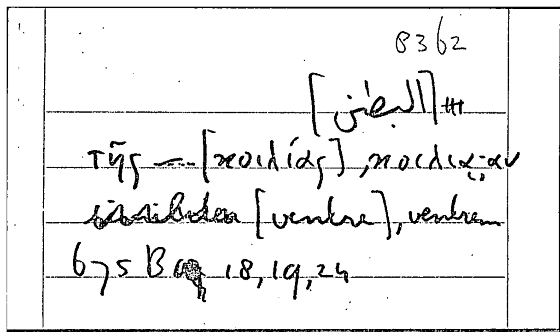 8362
[البطن] ###
τῆς — [κοιλίας], κοιλίαν
[ventre], ventrem
675 B 18, 19, 24